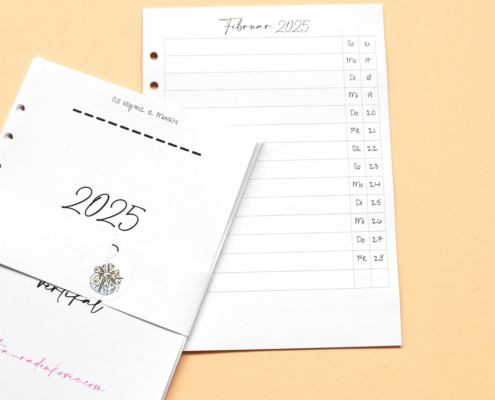 Februar 2025
So 16
Mo 17
Di 18
Mi 19
Do 20
FR 21
SA 22
So 23
Mo 24
Di 25
Mi 26
Do 27
FR 28
2025
vertikal
ta-radenkovic.com